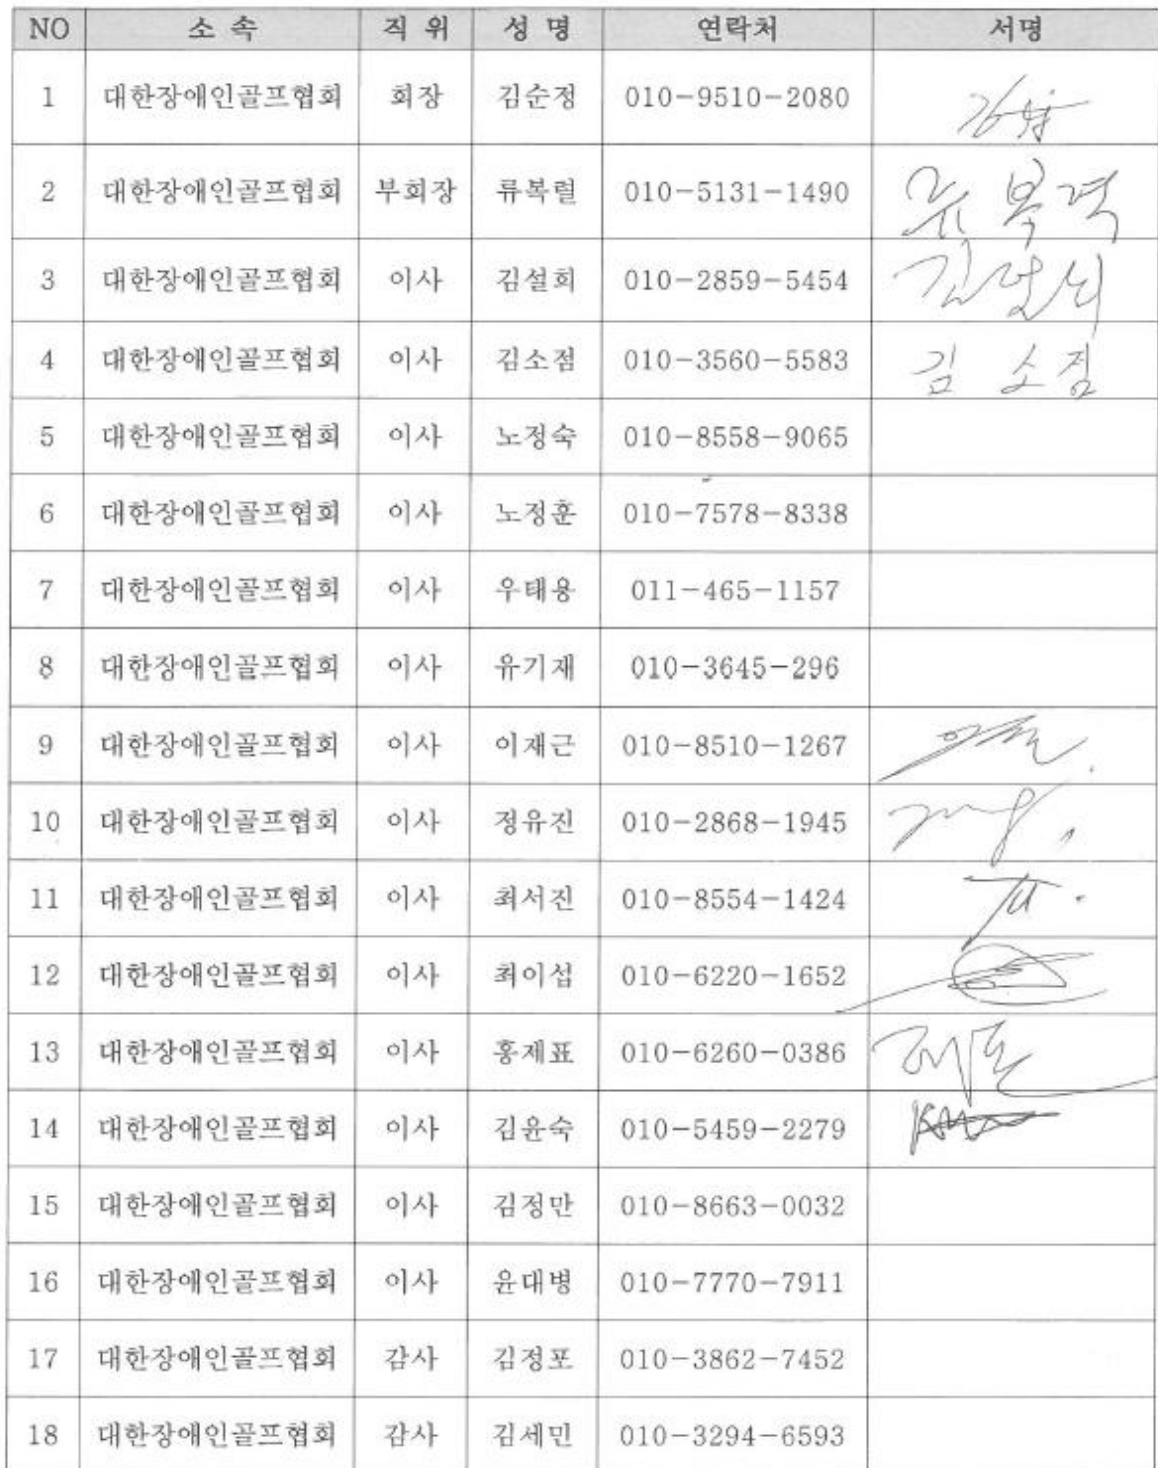 NO 소 속 직 위 성 명 연락처 서명
1 대한장애인골프협회 회장 김순정 010-9510-2080
2 대한장애인골프협회 부회장 류복렬 010-5131-1490
3 대한장애인골프협회 이사 김설희 010-2859-5454
4 대한장애인골프협회 이사 김소점 010-3560-5583 김 소점
5 대한장애인골프협회 이사 노정숙 010-8558-9065
6 대한장애인골프협회 이사 노정훈 010-7578-8338
7 대한장애인골프협회 이사 우태용 011-465-1157
8 대한장애인골프협회 이사 유기재 010-3645-296
9 대한장애인골프협회 이사 이재근 010-8510-1267
10 대한장애인골프협회 이사 정유진 010-2868-1945
11 대한장애인골프협회 이사 최서진 010-8554-1424
12 대한장애인골프협회 이사 최이섭 010-6220-1652
13 대한장애인골프협회 이사 홍제표 010-6260-0386
14 대한장애인골프협회 이사 김윤숙 010-5459-2279
15 대한장애인골프협회 이사 김정만 010-8663-0032
16 대한장애인골프협회 이사 윤대병 010-7770-7911
17 대한장애인골프협회 감사 김정포 010-3862-7452
18 대한장애인골프협회 감사 김세민 010-3294-6593